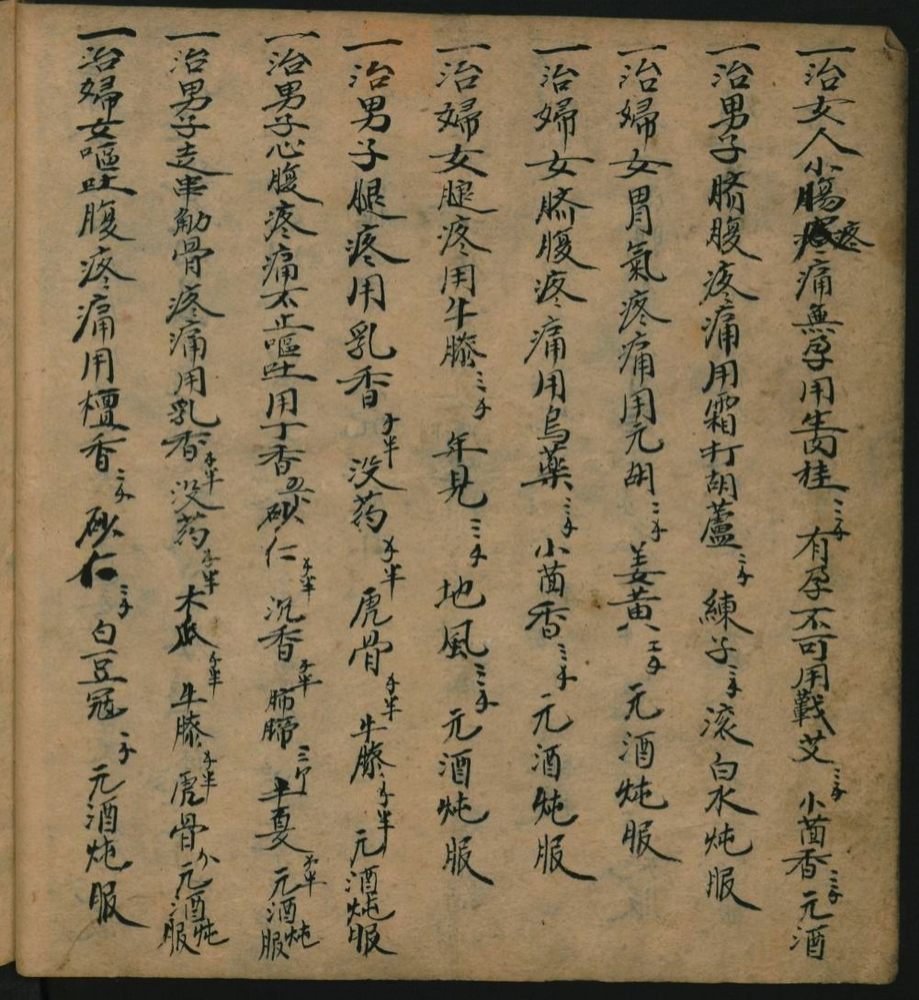 一治女人小腸疼痛無孕用肉桂三千有孕不可用戟艾三千小茴香三千元酒
一治男子臍腹疼痛用霜打胡蘆三千練子三千滚白水炖服
一治婦女胃氣疼痛用元胡二千姜黄二千元酒炖服
一治婦女臍腹疼痛用烏藥三千小茴香三千元酒炖服
一治婦女腿疼用牛膝三千年見三千地風三千元酒炖服
一治男子腿疼用乳香千半没药千半虎骨千半牛膝千半元酒炖服
一治男子心腹疼痛不止嘔吐用丁香砂仁千半沉香千半半夏千半元酒炖服
一治男子走串觔骨疼痛用乳香千半没药千半木瓜千半牛膝千半虎骨元酒炖服
一治婦女嘔吐腹疼痛用檀香三千砂仁三千白豆冦千元酒炖服